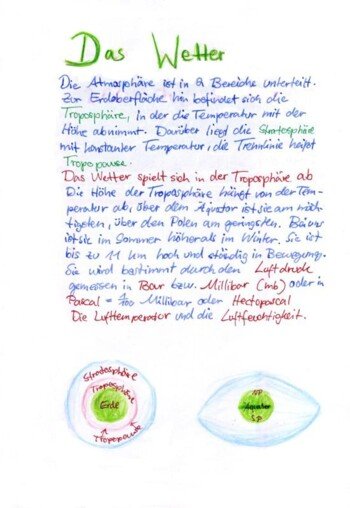 Das Wetter
Die Atmosphäre ist in 2 Bereiche unterteilt.
Zur Erdoberfläche hin befindet sich die
Troposphäre, in der die Temperatur mit der
Höhe abnimmt. Darüber liegt die Stratosphäre
mit konstanter Temperatur, die Trennlinie heißt
Tropopause.
Das Wetter spielt sich in der Troposphäre ab
Die Höhe der Troposphäre hängt von der Tem-
peratur ab, über dem Äquator ist sie am mäch-
tigsten, über den Polen am geringsten. Bei uns
ist sie im Sommer höher als im Winter. Sie ist
bis zu 11 km hoch und ständig in Bewegung.
Sie wird bestimmt durch den Luftdruck
gemessen in Bar bzw. Millibar (mb) oder in
Pascal = 1/100 Millibar oder Hectopascal
Die Lufttemperatur und die Luftfeuchtigkeit.
Stratosphäre
Troposphäre
Erde
Tropopause
NP
Äquator
S.P